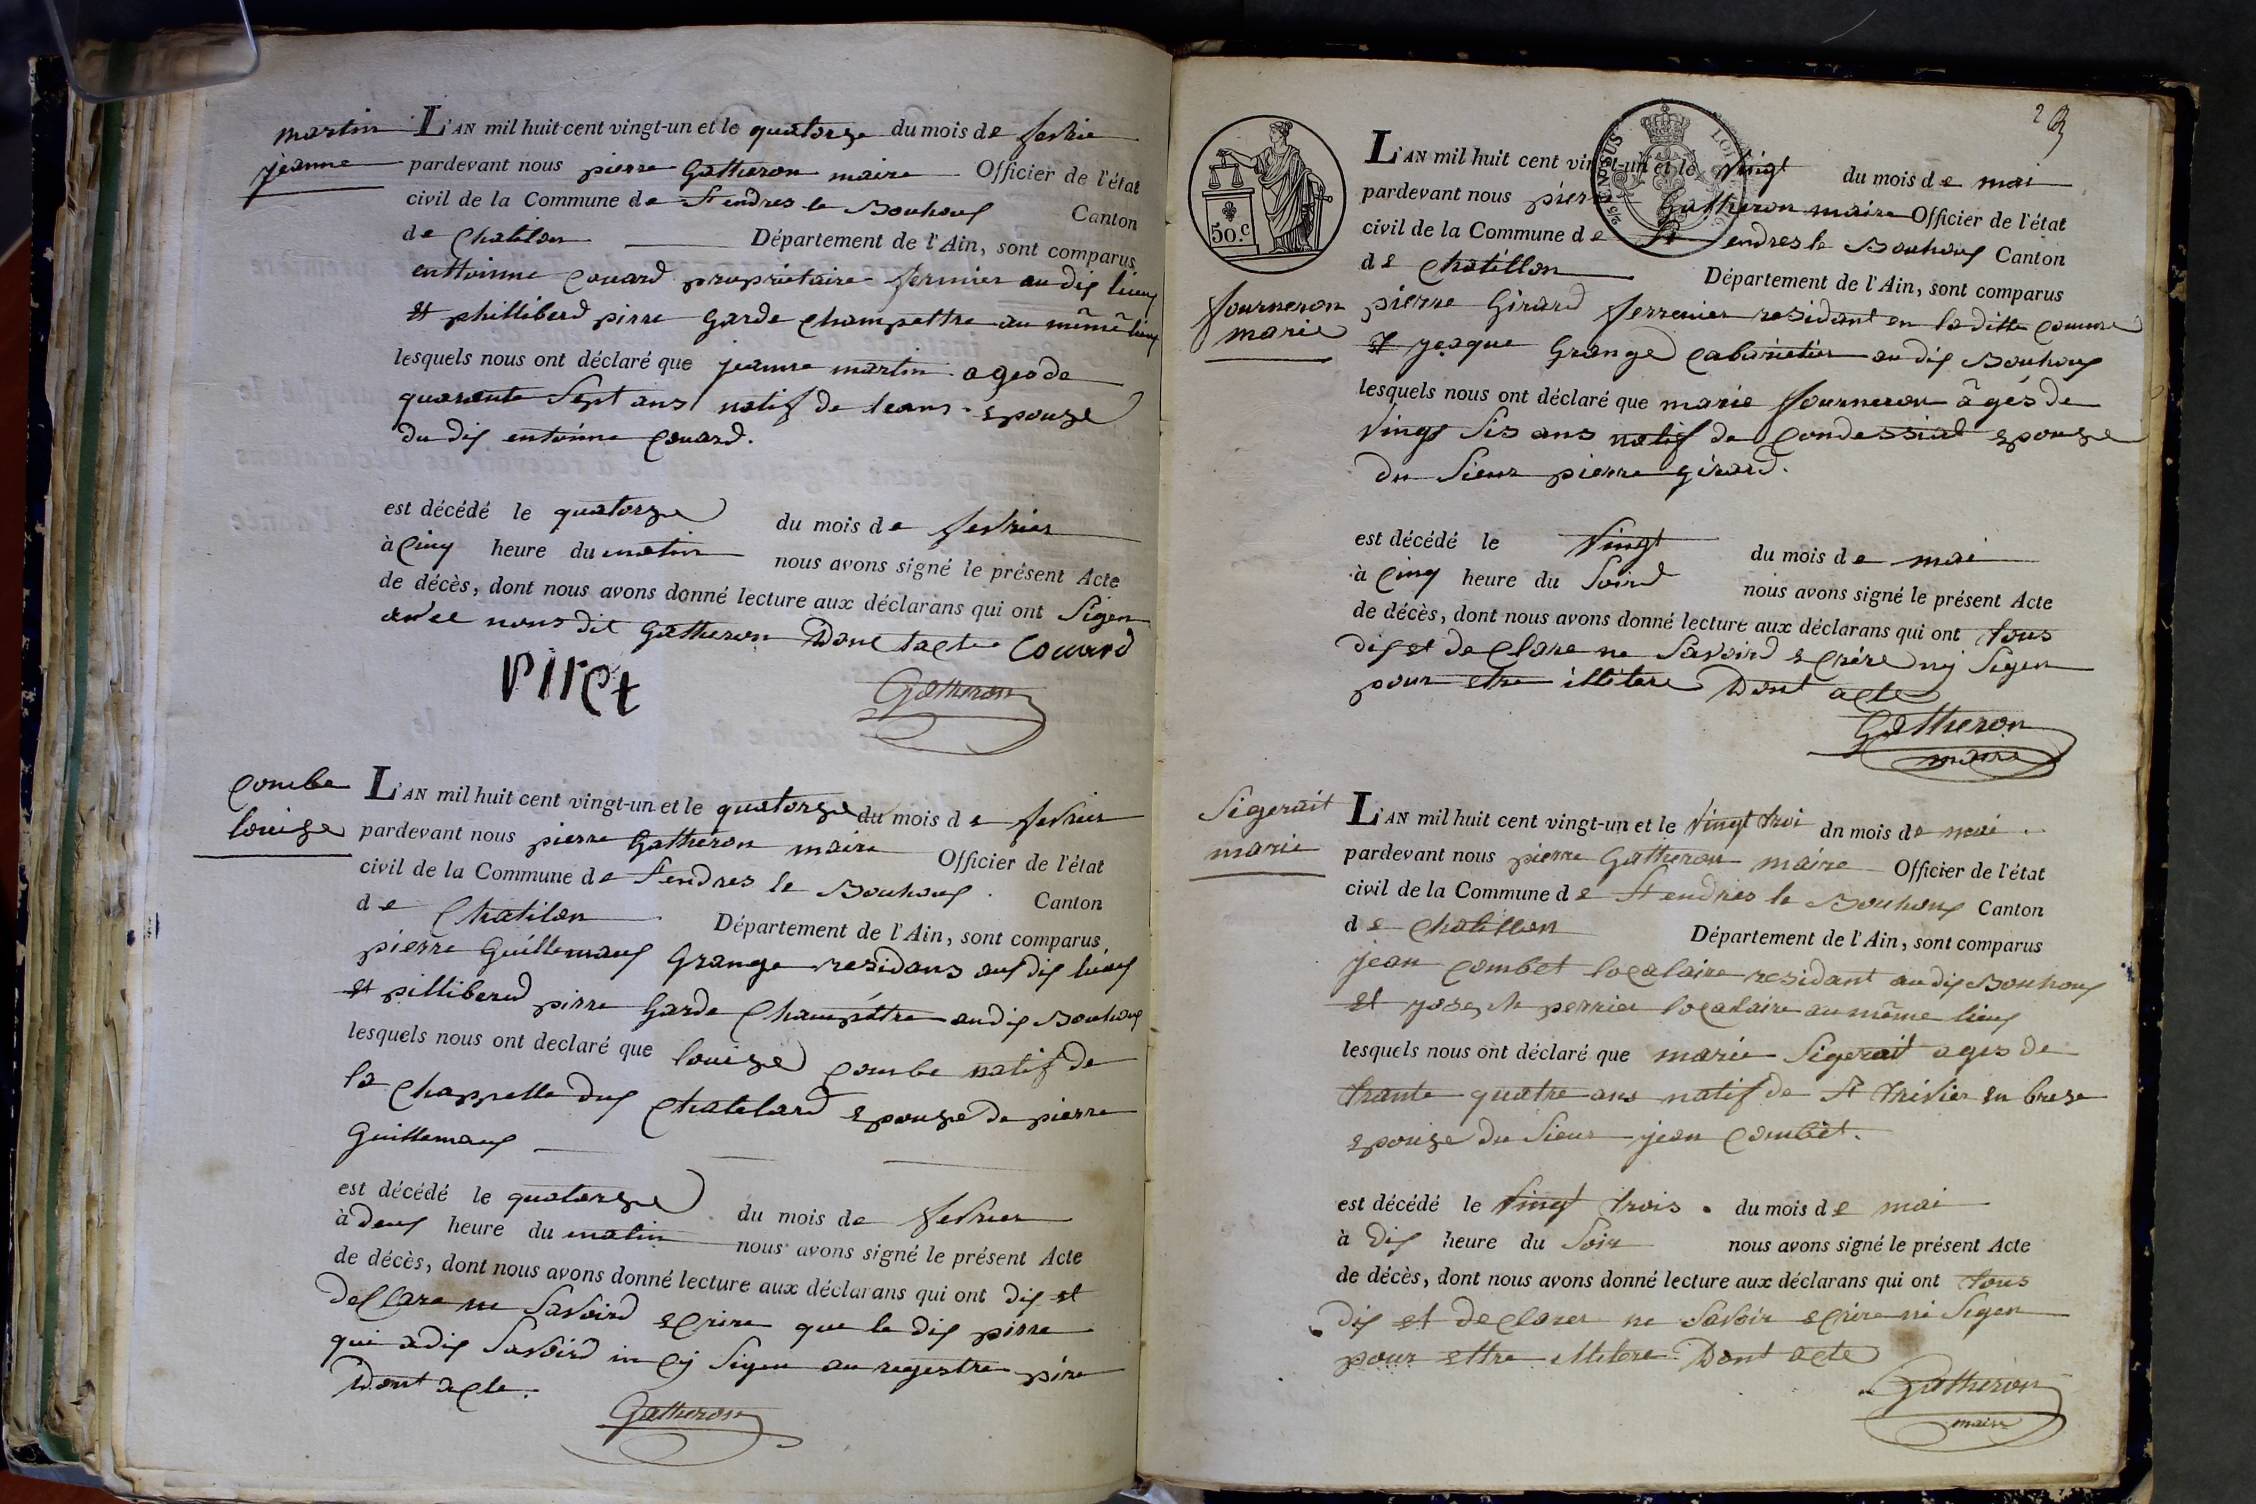 martin
jeanne
L'AN mil huit cent vingt-un et le quatorze du mois de fevrie
pardevant nous pierre Gatheron maire Officier de l'état
civil de la Commune de St endres le Bouhoux Canton
de Chatilon Département de l'Ain, sont comparus
enttoinne Couard propriétaire fermier au dis lieux
et philliberd pirre garde champettre au même lieux
lesquels nous ont déclaré que jeanne martin ages de
quarante sept ans natif de leans epouze
du dis entoinne Couard.
est décédé le quatorze du mois de fevrier
à cinq heure du matin nous avons signé le présent Acte
de décès, dont nous avons donné lecture aux déclarans qui ont Sigen
avec nous dit Gatheron Dont tacte Couard
piret
Gatheron
Combe
louize
L'AN mil huit cent vingt-un et le quatorze du mois de fevrier
pardevant nous pierre Gatheron maire Officier de l'état
civil de la Commune de St endres le Bouhoux Canton
de Chatilon Département de l'Ain, sont comparus
pierre Guillemaux Grange residans aux dis lieux
et pilliberd pirre garde Champétre au dis Bouhoux
lesquels nous ont declaré que louize Combe natif de
la Chappelle dux Chatelard epouze de pierre
Guillemaux
est décédé le quatorze du mois de fevrier
à deux heure du matin nous avons signé le présent Acte
de décès, dont nous avons donné lecture aux déclarans qui ont dis et
declare ne Savoird ecrire que le dis pirre
qui a dis Savoird Sigen au regestre pire
Dont acte.
Gatheron
50.C
LOI
fourneron
marie
L'AN mil huit cent vingt-un et le vingt du mois de mai
pardevant nous pierre Gatheron maire Officier de l'état
civil de la Commune de St endres le Bouhoux Canton
de Chatillon Département de l'Ain, sont comparus
pierre Girard ferremier residant en laditte Commune
et yaque Grange Cabarietier au dis Bouhoux
lesquels nous ont déclaré que marie fourneron âgés de
vingt Sis ans natif de Condessiat epouze
du Sieur pierre girard.
est décédé le vingt du mois de mai
à Cinq heure du Soird nous avons signé le présent Acte
de décès, dont nous avons donné lecture aux déclarans qui ont tous
dis et declare ne Savoird ecrire ny Sigen
pour etre illitere Dont acte
Gatheron
maire
Sigerait
marie
L'AN mil huit cent vingt-un et le vingt troi du mois de mai
pardevant nous pierre Gatheron maire Officier de l'état
civil de la Commune de St endres le Bouhoux Canton
de Chatillon Département de l'Ain, sont comparus
jean Combet localaire residant au dis Bouhoux
et perrier localaire au même lieux
lesquels nous ont déclaré que marie Sigerait ages de
trante quatre ans natif de St trivier en brese
epouze du Sieur jean Combet.
est décédé le vingt trois du mois de mai
à dix heure du Soir nous avons signé le présent Acte
de décès, dont nous avons donné lecture aux déclarans qui ont tous
dis et declarer ne savoir ecrire ni Sigen
pour ettre illitere Dont acte
Gatheron
maire